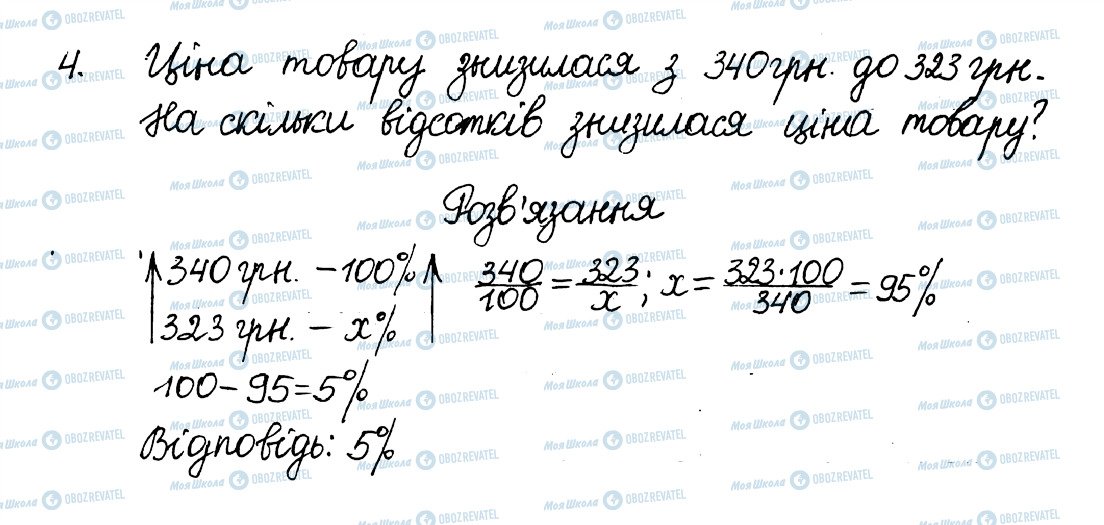 4. Ціна товару знизилася з 340 грн. до 323 грн.
На скільки відсотків знизилася ціна товару?
Розв'язання
340 грн. – 100% 340/100 = 323/x; x = 323·100/340 = 95%
323 грн. – x%
100 – 95 = 5%
Відповідь: 5%
Моя Школа OBOZREVATEL